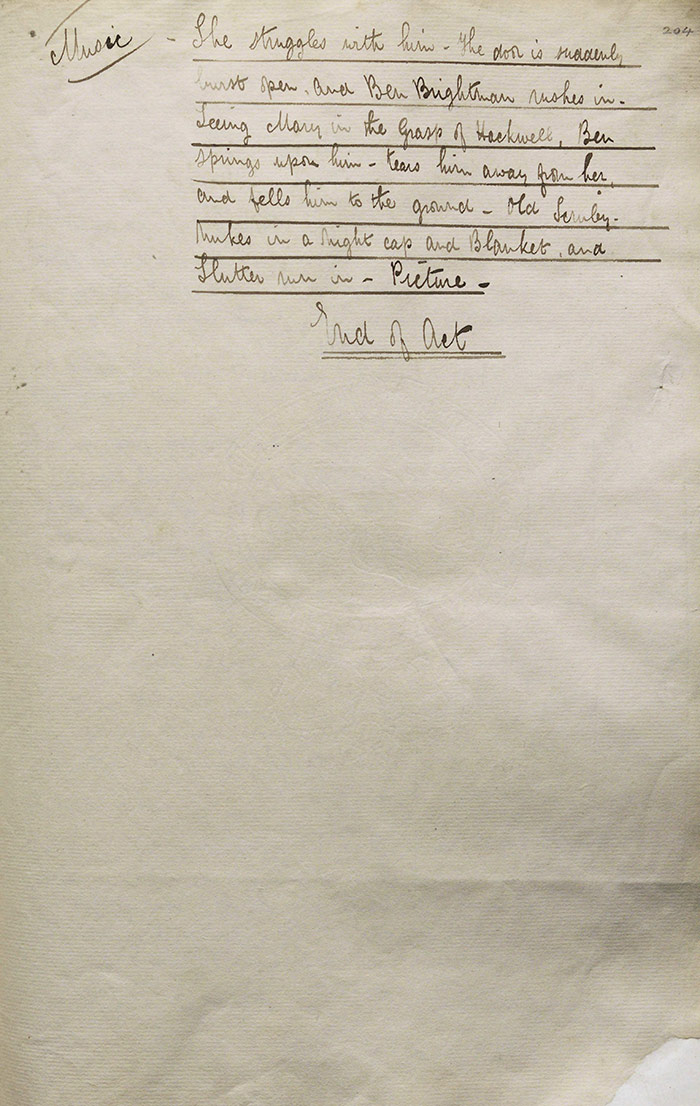 204
Music - She struggles with him - The door is suddenly
burst open, and Ben Brightman rushes in -
Seeing Mary in the Grasp of Hackwell, Ben
springs upon him - tears him away from her,
and fells him to the ground - Old Scruby -
in a Night cap and Blanket, and
Flutter run in - Picture -
End of Act